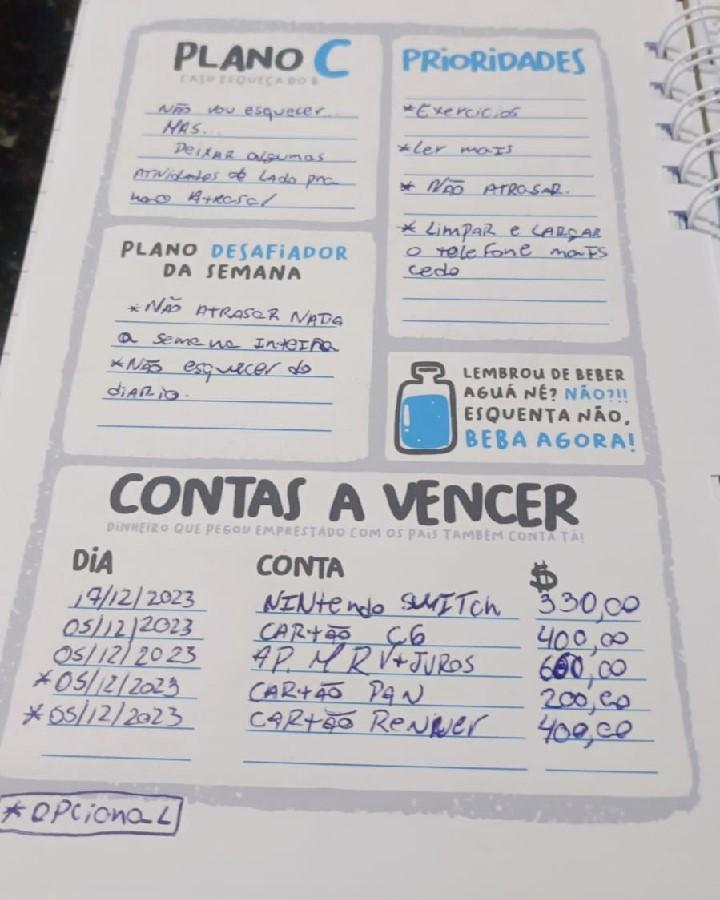 PLANO C
CASO ESQUEÇA DO B
NÃO vou esquecer...
MAS...
Deixar algumas
ATividades de lado pra
não Atrasar
PRiORiDADES
*Exercicios
*Ler maIS
* NÃO ATRASAR.
* LimpAR e CARGAR
o telefone maIS
cedo
PLANO DESAFiADOR
DA SEMANA
*NÃO ATRASAR NADA
a semana InteIRA
*Não esquecer do
diARio.
LEMBROU DE BEBER
AGUÁ NÉ? NÃO?!!
ESQUENTA NÃO,
BEBA AGORA!
CONTAS A VENCER
DiNHEiRO QUE PEGOU EMPRESTADO COM OS PAiS TAMBÉM CONTA TÁ!
DiA CONTA $
17/12/2023 NINtendo SWITCh 330,00
05/12/2023 CARtão C6 400,00
05/12/2023 AP MRV+JUROS 600,00
*05/12/2023 CARtão PAN 200,00
*05/12/2023 CARtão Renner 400,00
*OPCionaL